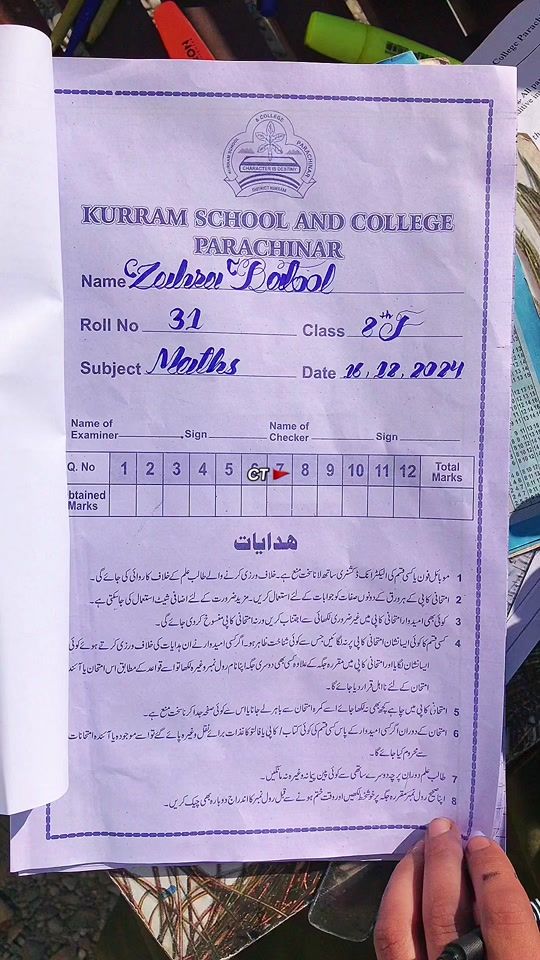 KURRAM SCHOOL & COLLEGE PARACHINAR
CHARACTER IS DESTINY
DISTRICT KURRAM
KURRAM SCHOOL AND COLLEGE
PARACHINAR
Name Zahra Batool
Roll No 31 Class 8th F
Subject Maths Date 16.12.2024
Name of Examiner Sign Name of Checker Sign
Q. No 1 2 3 4 5 6 7 8 9 10 11 12 Total Marks
btained Marks
CT
هدایات
1 موبائل فون یا کسی قسم کی الیکٹرانک ڈکشنری ساتھ لانا سخت منع ہے۔ خلاف ورزی کرنے والے طالب علم کے خلاف کاروائی کی جائے گی۔
2 امتحانی کاپی کے ہر ورق کے دونوں صفحات کو جوابات کے لئے استعمال کریں۔ مزید ضرورت کے لئے اضافی شیٹ استعمال کی جاسکتی ہے۔
3 کوئی بھی امیدوار امتحانی کاپی میں غیر ضروری لکھائی سے اجتناب کریں ورنہ امتحانی کاپی منسوخ کر دی جائے گی۔
4 کسی قسم کا کوئی ایسا نشان امتحانی کاپی پر نہ لگائیں جس سے کوئی شناخت ظاہر ہو۔ اگر کسی امیدوار نے ان ہدایات کی خلاف ورزی کرتے ہوئے کوئی
ایسا نشان لگایا اور امتحانی کاپی میں مقررہ جگہ کے علاوہ کسی بھی دوسری جگہ اپنا نام رول نمبر وغیرہ لکھا تو اسے قواعد کے مطابق اس امتحان یا آئندہ
امتحان کے لئے نا اہل قرار دیا جائے گا۔
5 امتحانی کاپی میں چاہے کچھ بھی نہ لکھا جائے اسے کمرہ امتحان سے باہر لے جانا یا اس سے کوئی صفحہ جدا کرنا سخت منع ہے۔
6 امتحان کے دوران اگر کسی امیدوار کے پاس کسی قسم کی کوئی کتاب / کاپی یا فالتو کاغذات برائے نقل وغیرہ پائے گئے تو اسے موجودہ یا آئندہ امتحانات
سے محروم کیا جائے گا۔
7 طالب علم دوران پرچہ دوسرے ساتھی سے کوئی پین پیمانہ وغیرہ نہ مانگیں۔
8 اپنا صحیح رول نمبر مقررہ جگہ پر خوشخط لکھیں اور وقت ختم ہونے سے قبل رول نمبر کا اندراج دوبارہ بھی چیک کریں۔